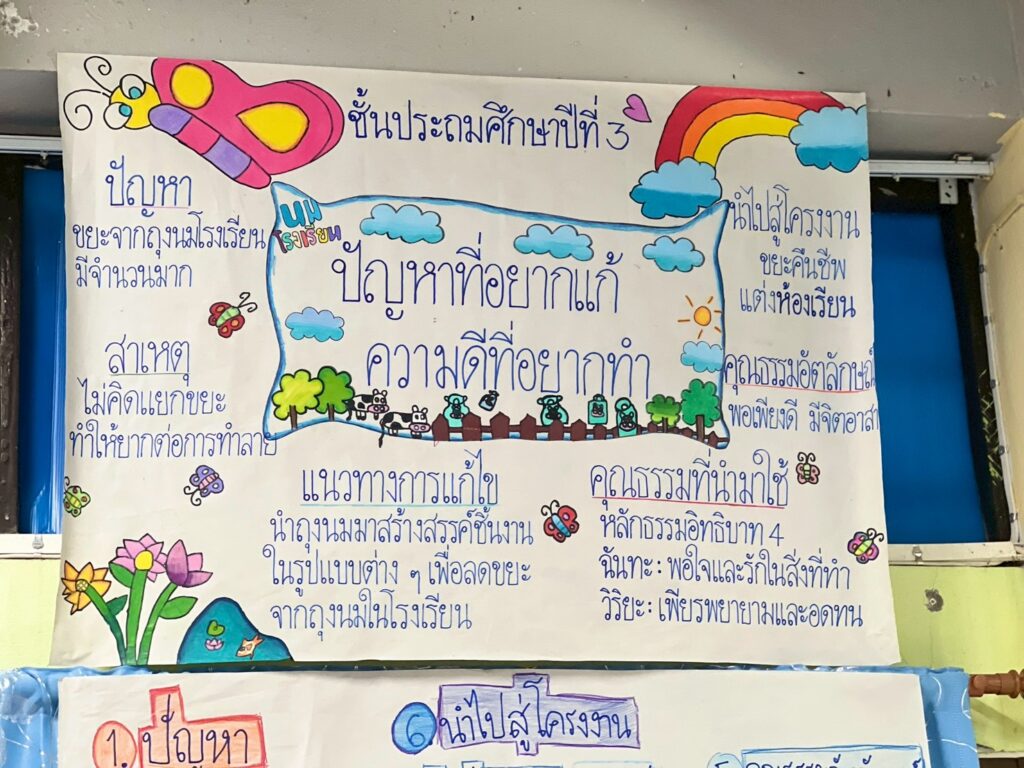 ชั้นประถมศึกษาปีที่ 3
ปัญหา
ขยะจากถุงนมโรงเรียน
มีจำนวนมาก
สาเหตุ
ไม่คิดแยกขยะ
ทำให้ยากต่อการทำลาย
นม
โรงเรียน
ปัญหาที่อยากแก้
ความดีที่อยากทำ
นำไปสู่โครงงาน
ขยะคืนชีพ
แต่งห้องเรียน
คุณธรรมอัตลักษณ์
พอเพียงดี มีจิตอาสา
แนวทางการแก้ไข
นำถุงนมมาสร้างสรรค์ชิ้นงาน
ในรูปแบบต่าง ๆ เพื่อลดขยะ
จากถุงนมในโรงเรียน
คุณธรรมที่นำมาใช้
หลักธรรมอิทธิบาท 4
ฉันทะ: พอใจและรักในสิ่งที่ทำ
วิริยะ: เพียรพยายามและอดทน
1. ปัญหา
6 นำไปสู่โครงงาน